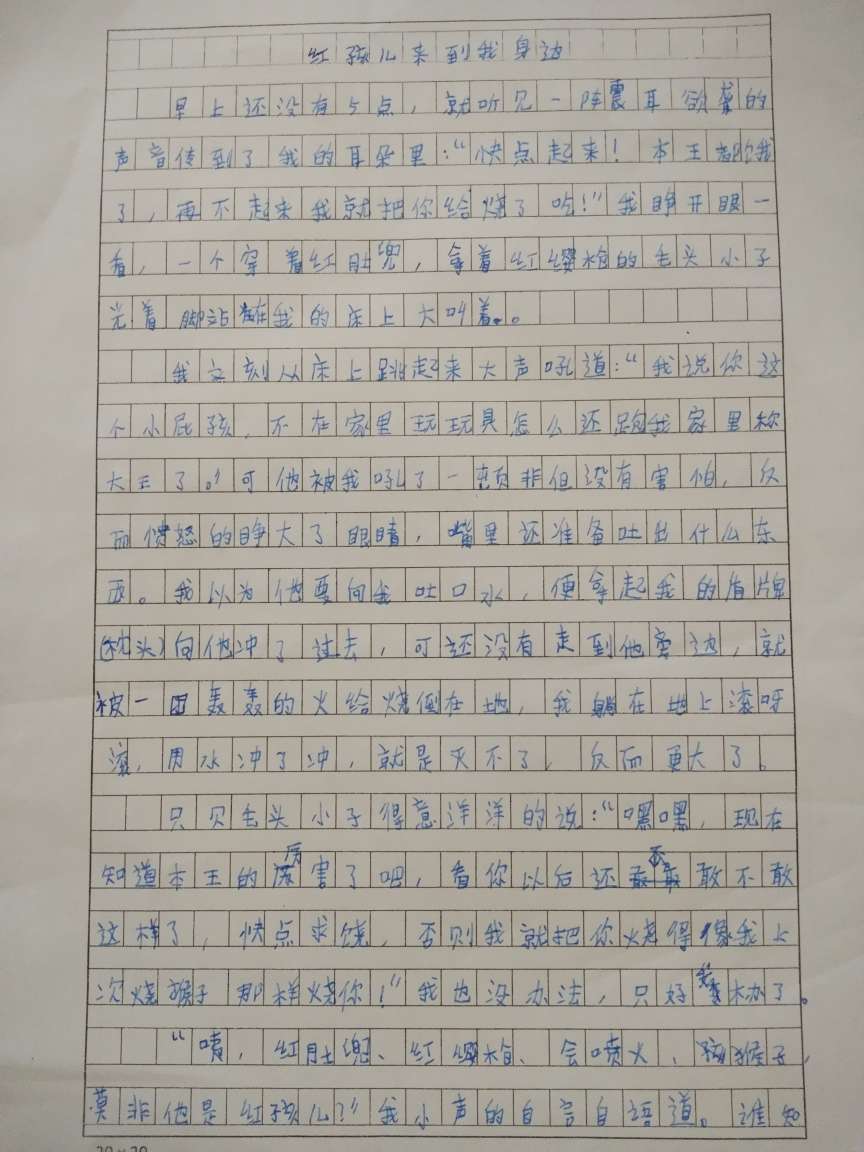 红孩儿来到我身边
早上还没有5点，就听见一阵震耳欲聋的
声音传到了我的耳朵里：“快点起来！本王都饿
了，再不起来我就把你给烧了吃！”我睁开眼一
看，一个穿着红肚兜，拿着红缨枪的毛头小子
光着脚站在我的床上大叫着。
我立刻从床上跳起来大声吼道：“我说你这
个小屁孩，不在家里玩玩具怎么还跑我家里称
大王了。”可他被我吼了一顿非但没有害怕，反
而愤怒的睁大了眼睛，嘴里还准备吐出什么东
西。我以为他要向我吐口水，便拿起我的盾牌
(枕头)向他冲了过去，可还没有走到他旁边，就
被一团轰轰的火给烧倒在地，我躺在地上滚呀
滚，用水冲了冲，就是灭不了，反而更大了。
只见毛头小子得意洋洋的说：“嘿嘿，现在
知道本王的厉害了吧，看你以后还敢不敢
这样了，快点求饶，否则我就把你烧得像我上
次烧猴子那样烧你！”我也没办法，只好办了。
“啧，红肚兜、红缨枪、会喷火、孩猴子，
莫非他是红孩儿？”我小声的自言自语道。谁知
20×20